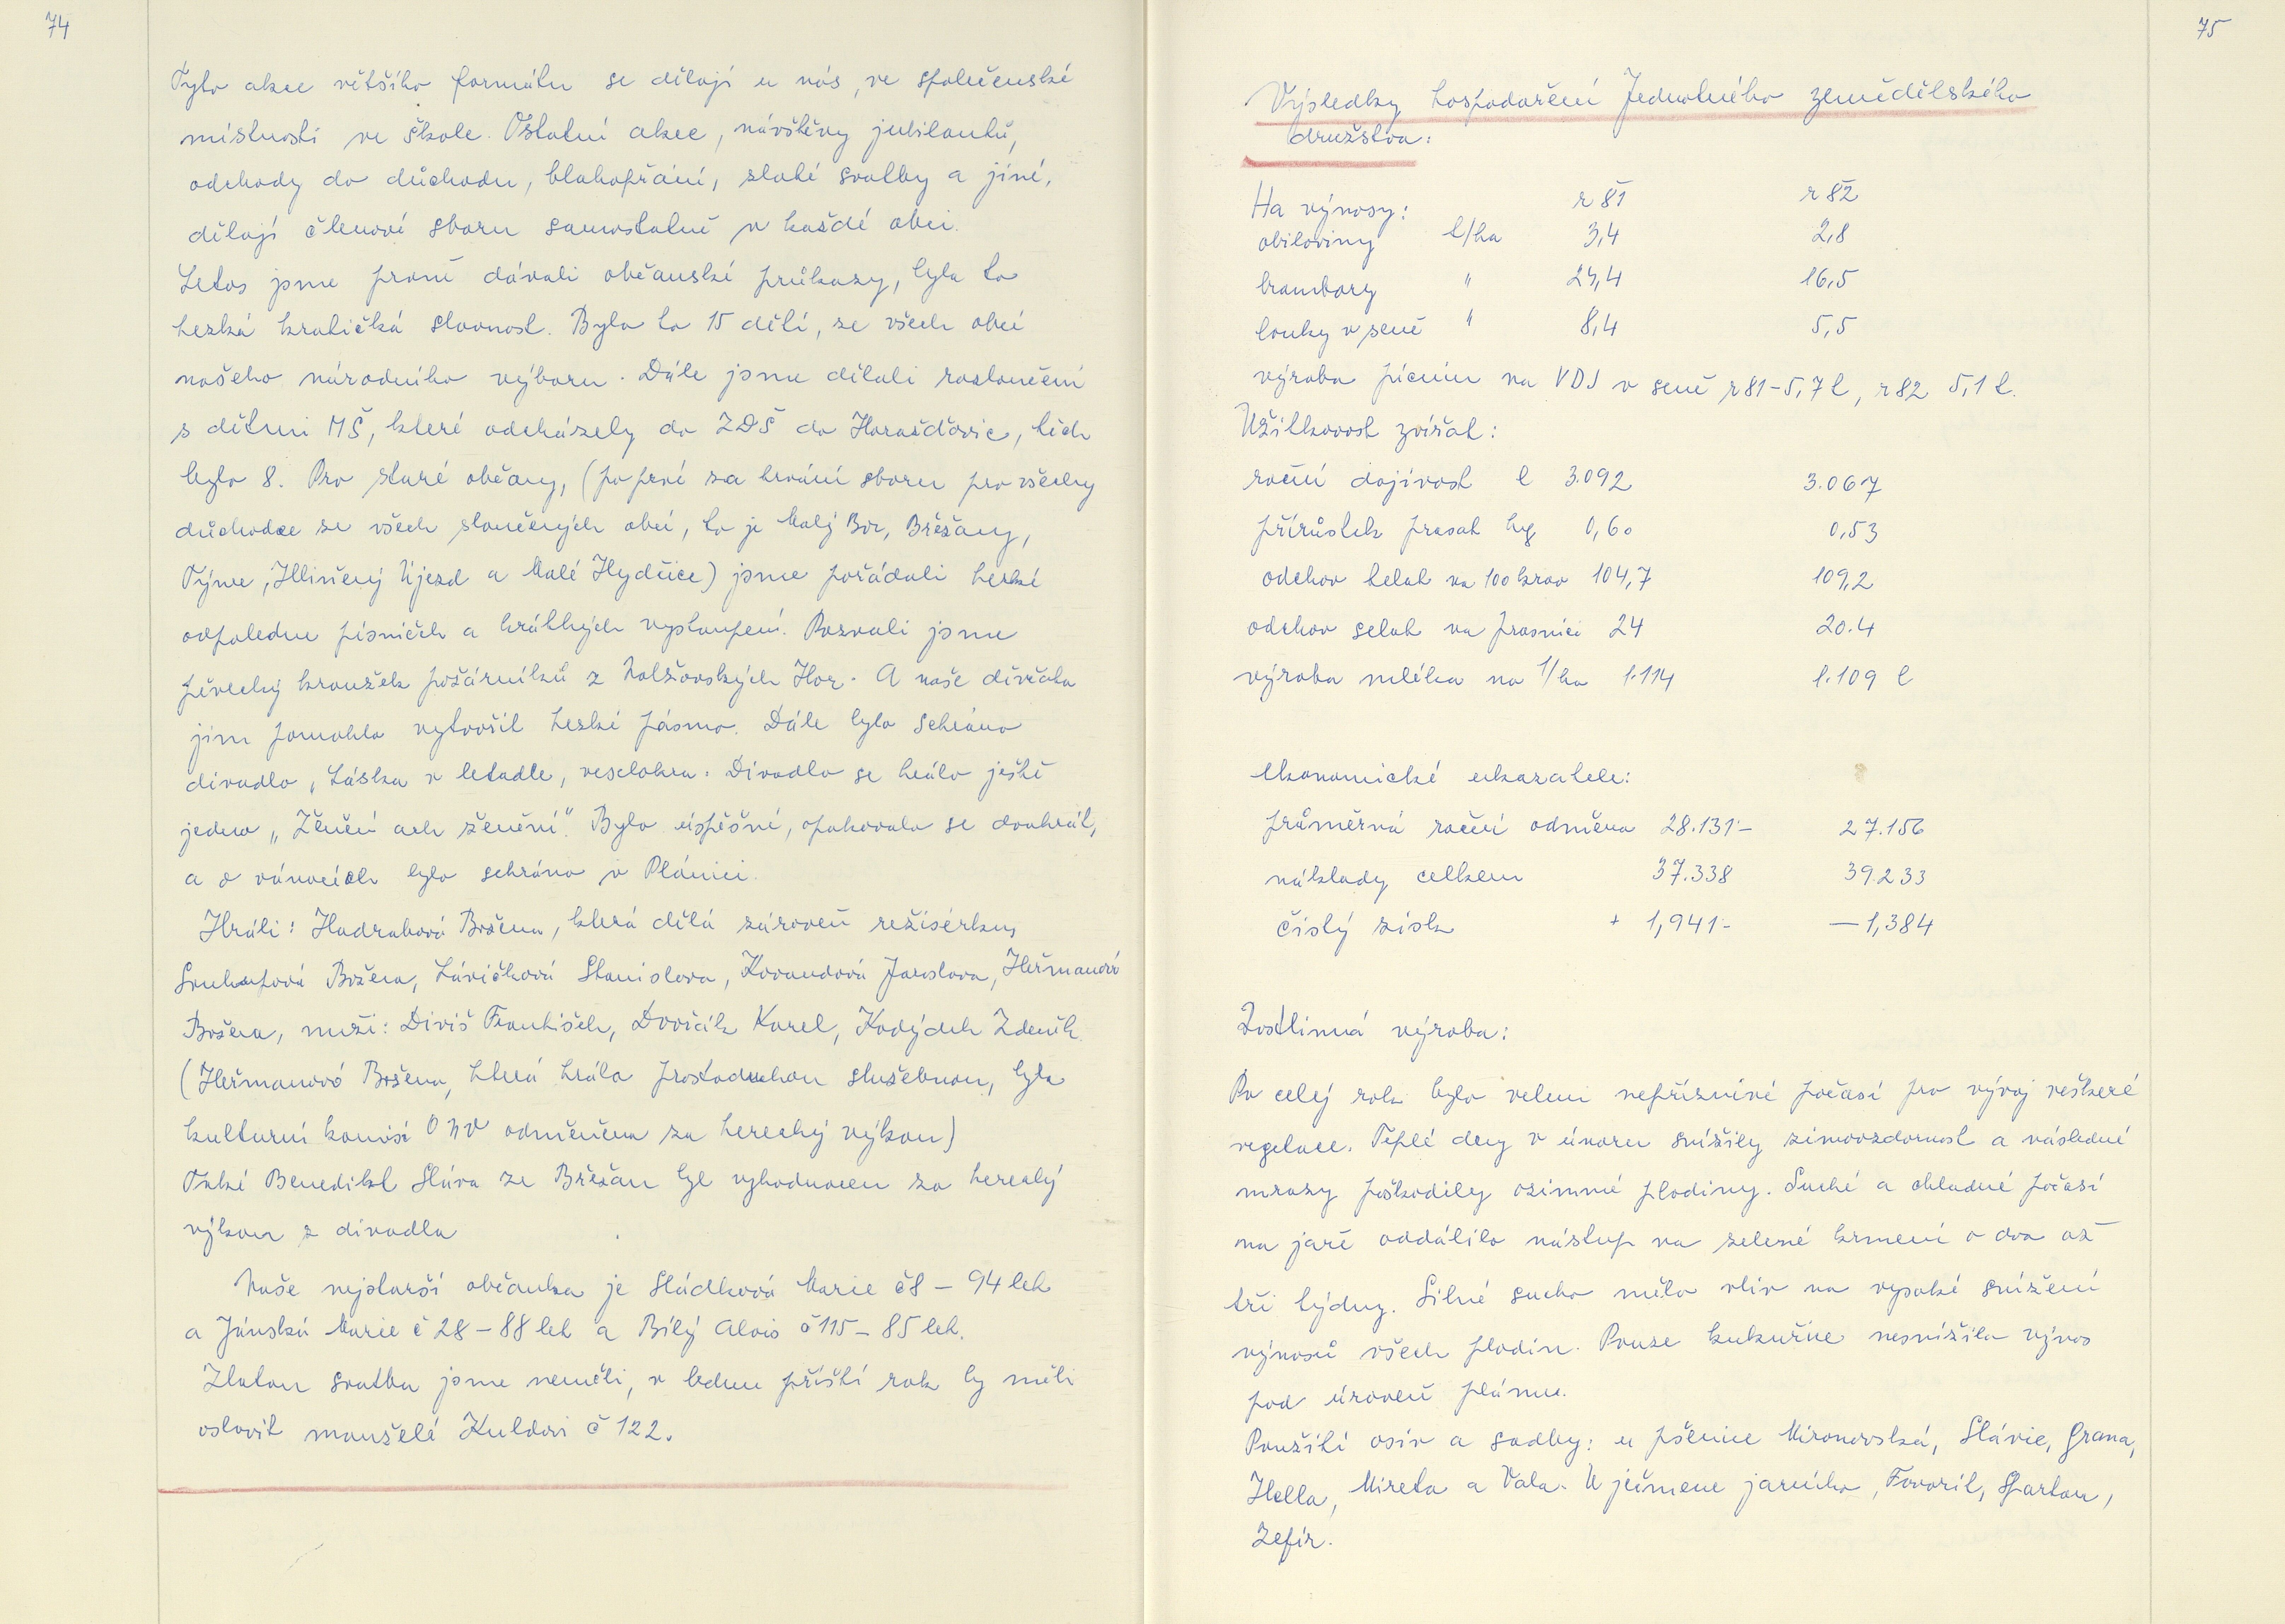 74
Tyto akce většího formátu se dělají u nás, ve společenské
místnosti ve škole. Ostatní akce, návštěvy jubilantů,
odchody do důchodu, blahopřání, zlaté svatby a jiné,
dělají členové sboru samostatně v každé obci.
Letos jsme prvně dávali občanské průkazy, byla to
hezká kratičká slavnost. Bylo to 15 dětí, ze všech obcí
našeho národního výboru. Dále jsme dělali rozloučení
s dětmi MŠ, které odcházely do ZDŠ do Horažďovic, těch
bylo 8. Pro staré občany, (poprvé za trvání sboru pro všechny
důchodce ze všech sloučených obcí, to je Malý Bor, Břežany,
Týnec, Hliněný Újezd a Malé Hydčice) jsme pořádali hezké
odpoledne písniček a krátkých vystoupení. Pozvali jsme
pěvecký kroužek požárníků z Nalžovských Hor. A naše děvčata
jim pomohla vytvořit hezké pásmo. Dále bylo sehráno
divadlo „Láska v letadle, veselohra. Divadlo se hrálo ještě
jedno „Ženění ach ženění". Bylo úspěšné, opakovalo se dvakrát,
a o vánocích bylo sehráno v Plánici.
Hráli: Hadrabová Božena, která dělá zároveň režisérku,
Božena, Lávičková Stanislava, Kovandová Jaroslava, Heřmanová
Božena, muži: Diviš František, Dvořák Karel, Kodýdek Zdeněk
(Heřmanová Božena, která hrála prostoduchou služebnou, byla
kulturní komisí ONV odměněna za herecký výkon)
Také Benedikt Sláva ze Břežan byl vyhodnocen za herecký
výkon z divadla
Naše nejstarší občanka je Sládková Marie č8 – 94 let
a Jánská Marie č 28 – 88 let a Bílý Alois č 115 – 85 let.
Zlatou svatbu jsme neměli, v lednu příští rok by měli
oslavit manželé Kuldovi č 122.
75
Výsledky hospodaření Jednotného zemědělského
družstva:
Ha výnosy: r 81 r 82
obiloviny t/ha 3,4 2,8
brambory " 24,4 16,5
louky v seně " 8,4 5,5
výroba pícnin na VDJ v seně r 81 – 5,7 t, r 82 5,1 t.
Užitkovost zvířat:
roční dojivost l 3.092 3.067
přírůstek prasat kg 0,60 0,53
odchov telat na 100 krav 104,7 109,2
odchov selat na prasnici 24 20.4
výroba mléka na 1/ha 1.114 1.109 l
ekonomické ukazatele:
průměrná roční odměna 28.131.- 27.156
náklady celkem 37.338 39.233
čistý zisk + 1,941.- — 1,384
Rostlinná výroba:
Po celý rok bylo velmi nepříznivé počasí pro vývoj veškeré
vegetace. Teplé dny v únoru snížily zimovzdornost a následné
mrazy poškodily ozimné plodiny. Suché a chladné počasí
na jaře oddálilo nástup na zelené krmení o dva až
tři týdny. Silné sucho mělo vliv na vysoké snížení
výnosů všech plodin. Pouze kukuřice nesnížila výnos
pod úroveň plánu.
Použití osiv a sadby: u pšenice Mironovská, Slávie, Grana,
Hella, Mireta a Vala. U ječmene jarního, Favorit, Spartan,
Zefír.